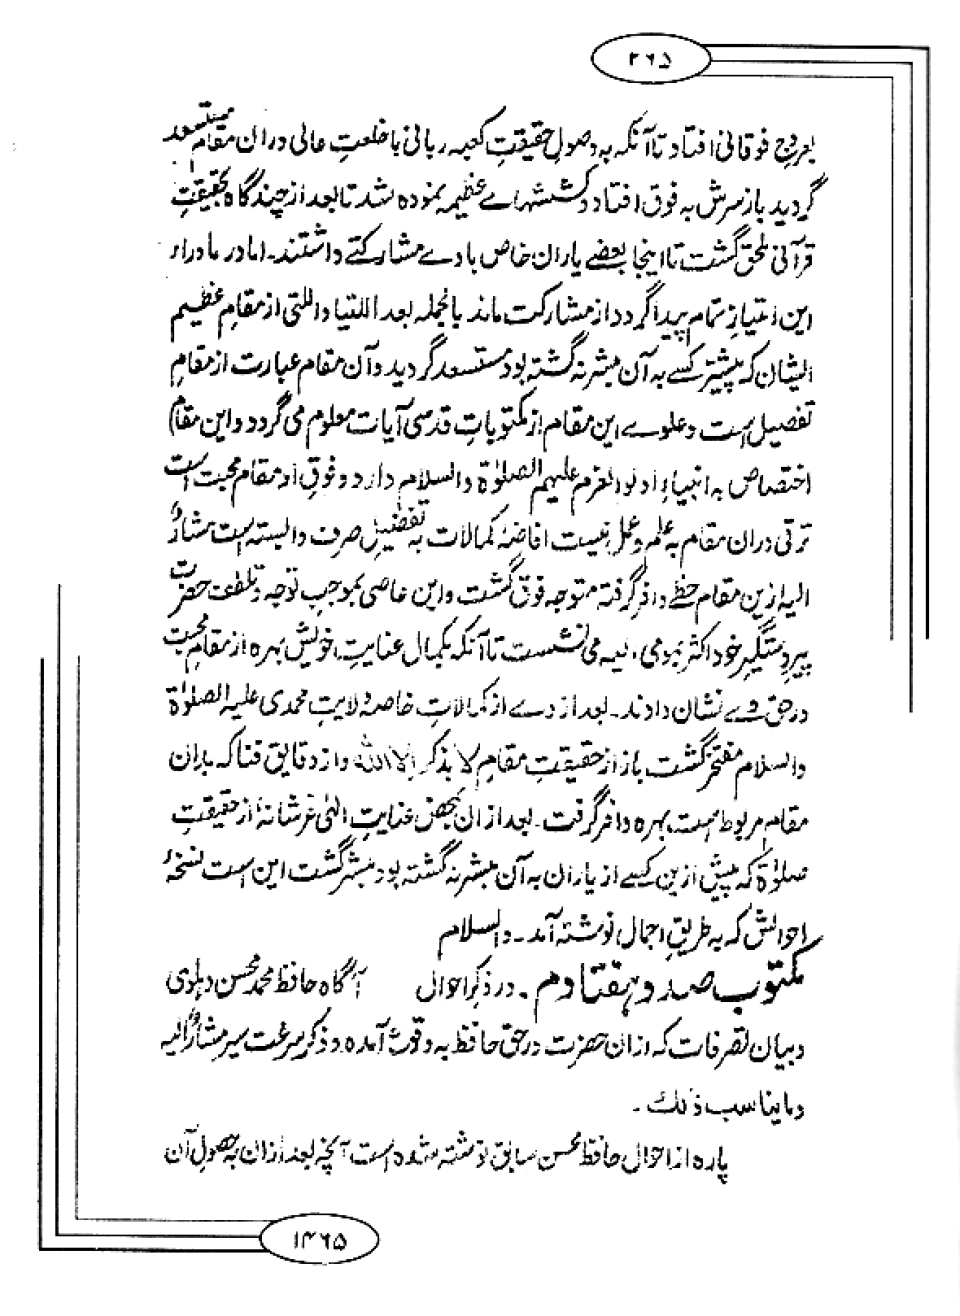 ۲۶۵
بعروج فوقانی افتاد تا آنکه به وصول حقیقتِ کعبه ربانی با خلعتِ عالی دران مقام مستسعد
گردید باز سرش به فوق افتاد و کششہاے عظیمہ نموده شد تا بعد از چند گاه بحقیقتِ
قرآنی ملحق گشت تا اینجا بعضے یاران خاص باوے مشارکتے داشتند۔ اما در ماوراء
این امتیازِ تمام پیدا گردد از مشارکت ماند بالجملہ بعد اللتیا واللتی از مقامِ عظیم
الشان کہ پیشتر کسے به آن مبشر نہ گشته بود مستسعد گردید وآن مقام عبارت از مقامِ
تفصیل است وعلوے این مقام از مکتوباتِ قدسی آیات معلوم می گردد واین مقام
اختصاص به انبیاءِ اولوالعزم علیهم الصلوٰة والسلام دارد وفوقِ او مقام محبت است
ترقی دران مقام به علم وعمل نیست افاضۂ کمالات به تفضیلِ صرف وابسته است مشارٌ
الیه ازین مقام حظے وافر گرفتہ متوجہ فوق گشت واین عاصی بموجبِ توجہ وتلطفِ حضرت
پیر دستگیر خود اکثر می نشست تا آنکہ بکمال عنایتِ خویش بهره از مقامِ محبت
درحق وے نشان دادند۔ بعد از وے از کمالاتِ خاصۂ ولایتِ محمدی علیه الصلوٰة
والسلام مفتخر گشت باز از حقیقتِ مقامِ لا بذکر الا الله واز دقایق فنا کہ بدان
مقام مربوط است بهره وافر گرفت۔ بعد ازان بمحض عنایتِ الٰہی عزشانہٗ از حقیقتِ
صلوٰة کہ پیش ازین کسے از یاران به آن مبشر نہ گشته بود مبشر گشت این است نسخۂ
احوالش کہ به طریقِ اجمال نوشته آمد۔ والسلام
مکتوب صد و ہفتاد م۔ در ذکرِ احوال آگاه حافظ محمد محسن دہلوی
وبیان تصرفات کہ ازان حضرت درحق حافظ به وقوع آمده وذکر سرعت سیر مشارٌالیه
وما یناسب ذٰلک۔
پاره از احوال حافظ محسن سابق نوشته شده است آنچه بعد ازان بحصولِ آن
۱۴۶۵